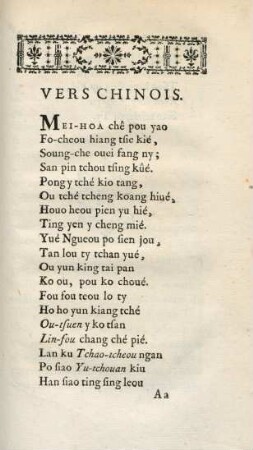 VERS CHINOIS.
MEI-HOA chê pou yao
Fo-cheou hiang tsie kié,
Soung-che ouei fang ny;
San pin tchou tsing kûé.
Pong y tché kio tang,
Ou tché tcheng koang hiué,
Houo heou pien yu hié,
Ting yen y cheng mié.
Yué Ngueou po sien jou,
Tan lou ty tchan yué,
Ou yun king tai pan
Ko ou, pou ko choué.
Fou sou teou lo ty
Ho ho yun kiang tché
Ou-tsuen y ko tsan
Lin-fou chang ché pié.
Lan ku Tchao-tcheou ngan
Po siao Yu-tchouan kiu
Han siao ting sing leou
Aa